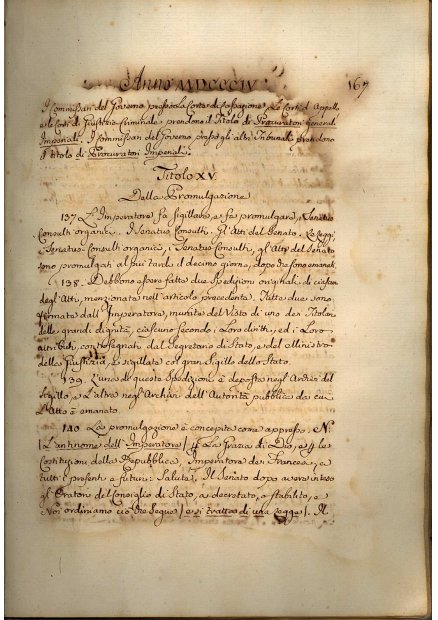 Anno MDCCCIV
167
I Commissari del Governo presso la Corte di Cassazione, le Corti d'Appello
e le Corti di Giustizia Criminale prendono il Titolo di Procuratori Generali
Imperiali. I Commissari del Governo presso gli altri Tribunali prendono
il titolo di Procuratori Imperiali.
Titolo XV.
Della Promulgazione
137. L'Imperatore fà sigillare, e fà promulgare, i Senatus
Consulti organici. I Senatus Consulti. Gli Atti del Senato. Le Leggi
I Senatus Consulti organici, i Senatus Consulti, gli Atti del Senato
sono promulgati al più tardi il decimo giorno, dopo che sono emanati.
138. Debbono essere fatte due Spedizioni originali di ciascun
degl'Atti, menzionati nell'articolo precedente. Tutte due sono
firmate dall'Imperatore, munite del Visto di uno dei Titolari
delle grandi dignità, ciascuno secondo i Loro diritti, ed i Loro
attributi, controsegnati dal Segretario di Stato, e dal Ministro
della Giustizia, e sigillate col gran Sigillo dello Stato.
139. L'una di queste Spedizioni è deposta negl'Archivi del
Sigillo, e l'altra negl'Archivi dell'Autorità pubblica da cui
l'Atto è emanato.
140. La promulgazione è concepita come appresso. N:
(L'antinome dell'Imperatore) p. La Grazia di Dio, e p. le
Costituzioni della Repubblica, Imperatore de' Francesi, a
tutti i presenti e futuri: Salute. Il Senato dopo avere inteso
gl'Oratori del Consiglio di Stato, ha decretato, o stabilito, e
Noi ordiniamo ciò che segue (e si tratta di una Legge). Il